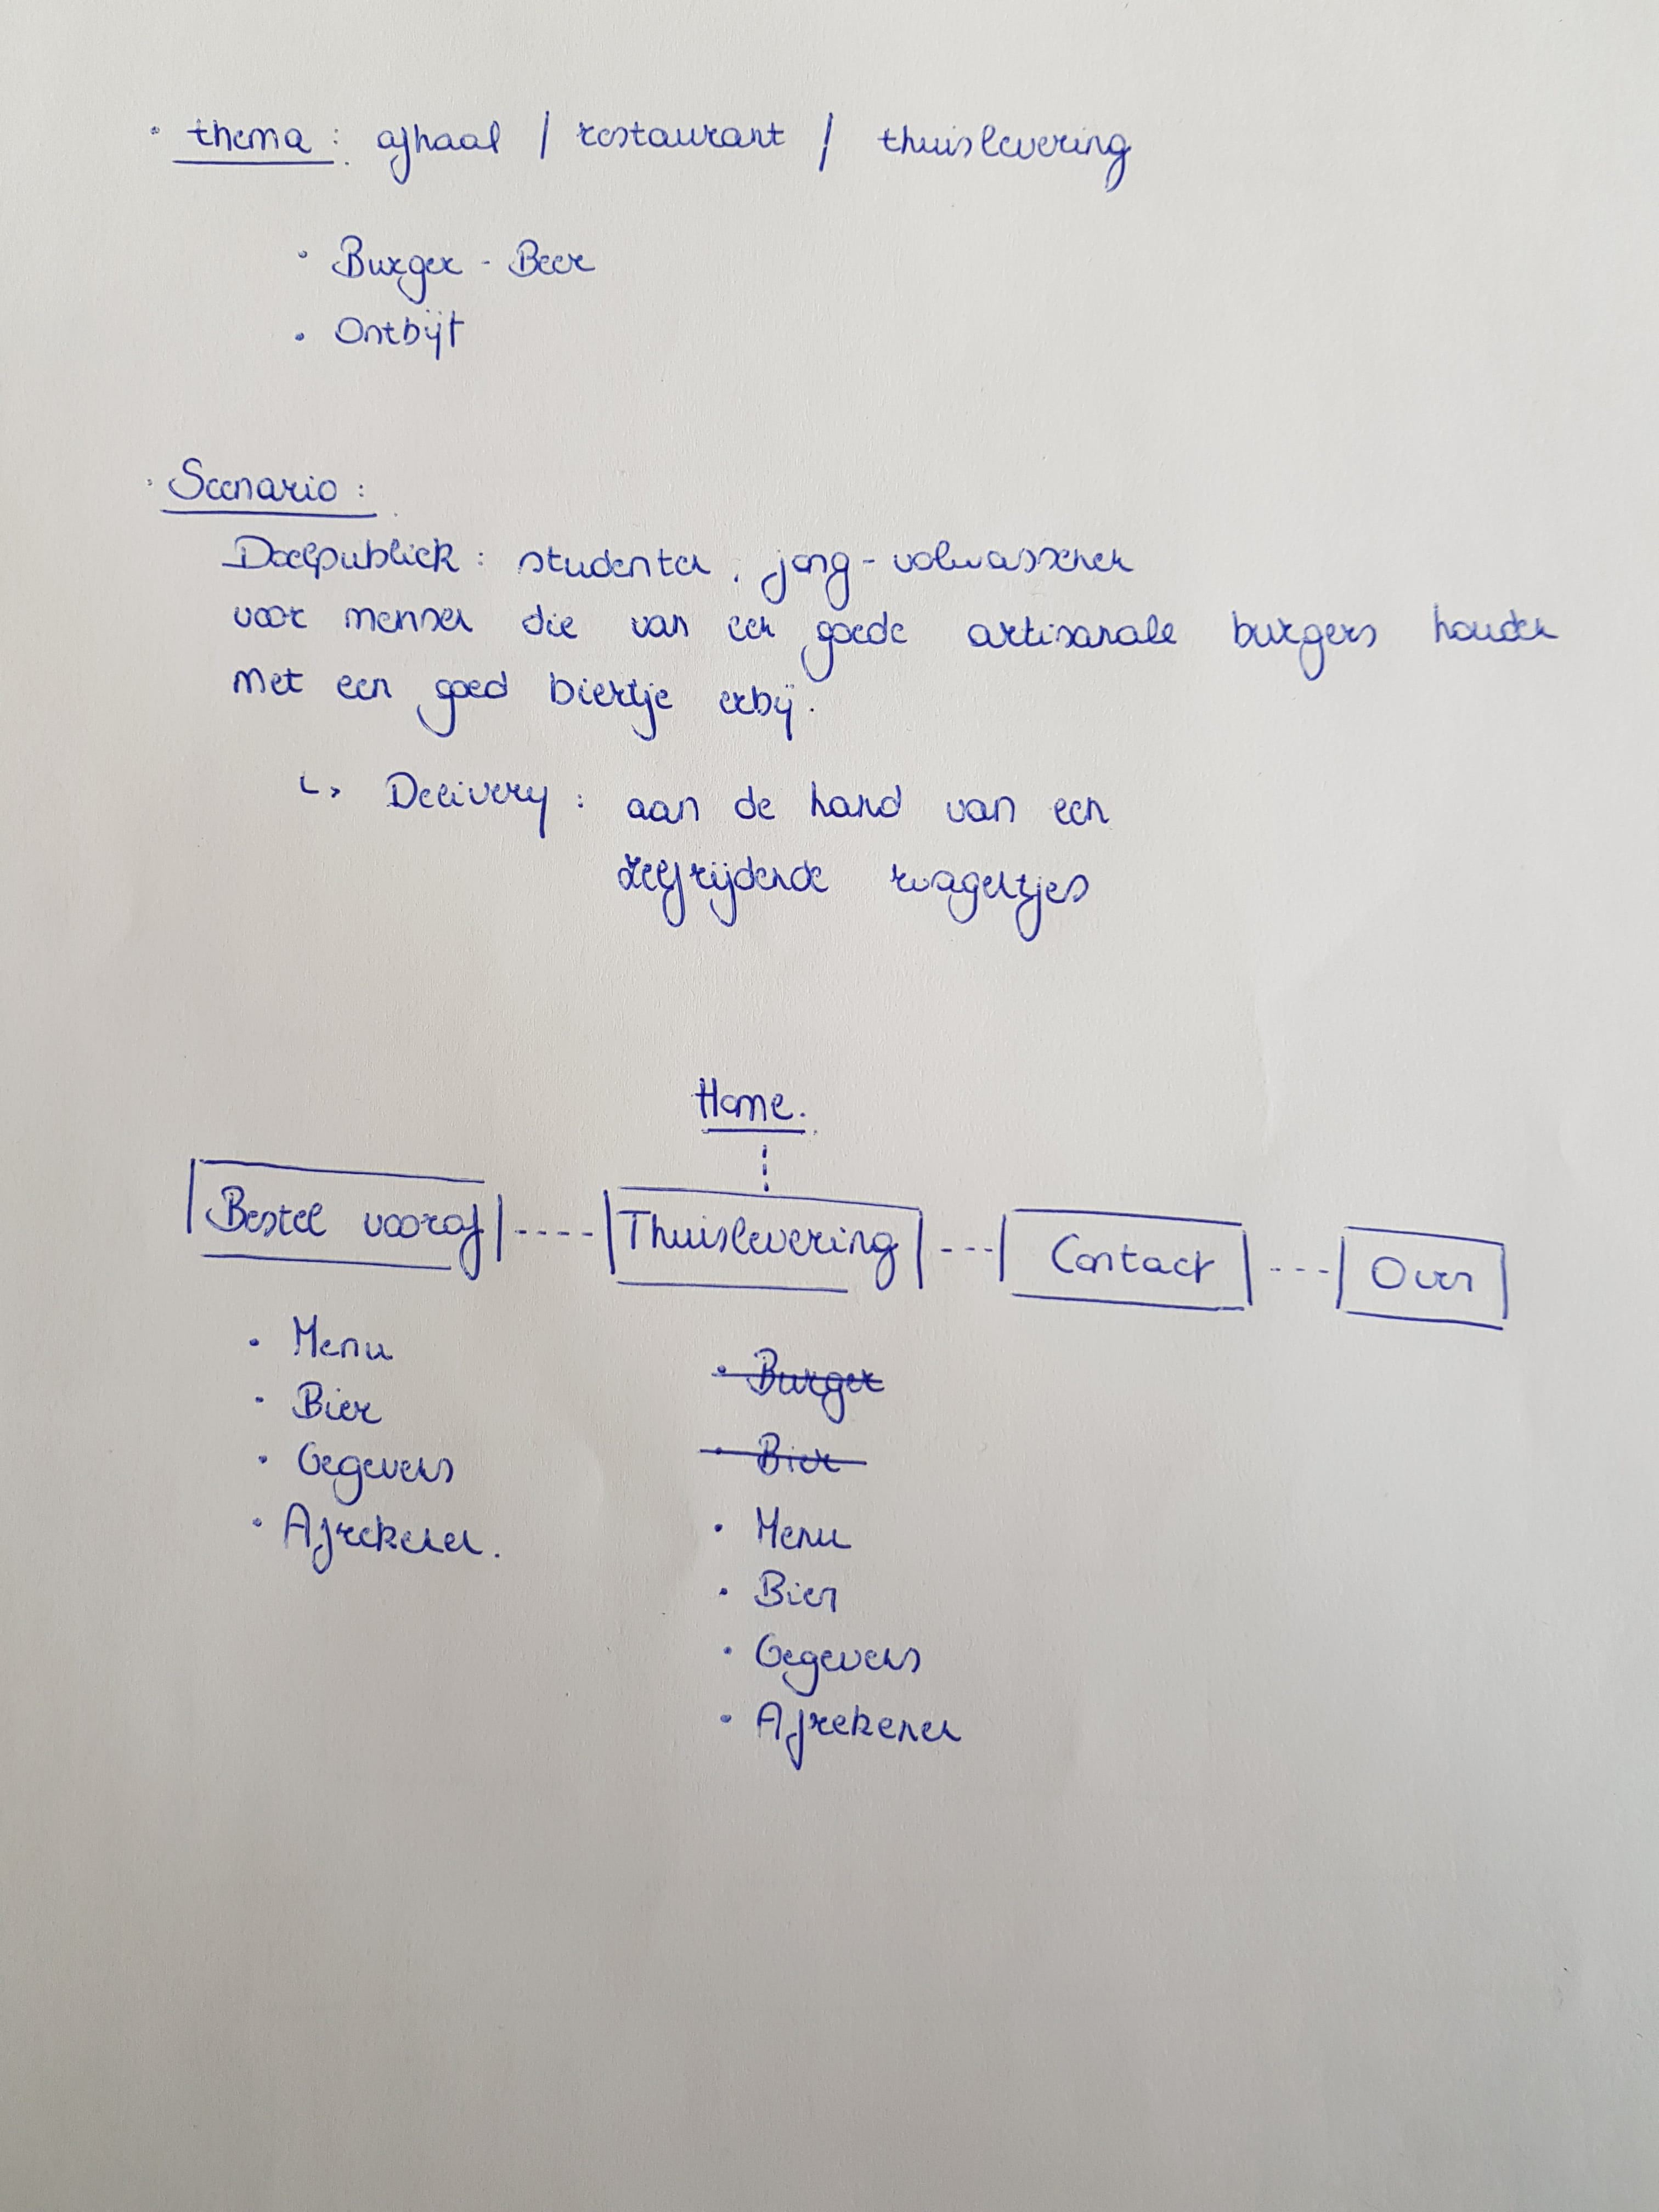 · thema : afhaal / restaurant / thuislevering
· Burger - Beer
· Ontbijt
· Scenario :
Doelpubliek : studenten, jong-volwassenen
voor mensen die van een goede artisanale burgers houden
met een goed biertje erbij.
↳ Delivery : aan de hand van een
zelfrijdende wagentjes
Home.
Bestel vooraf ---- Thuislevering --- Contact --- Over
· Menu
· Bier
· Gegevens
· Afrekenen.
· Burger
· Bier
· Menu
· Bier
· Gegevens
· Afrekenen